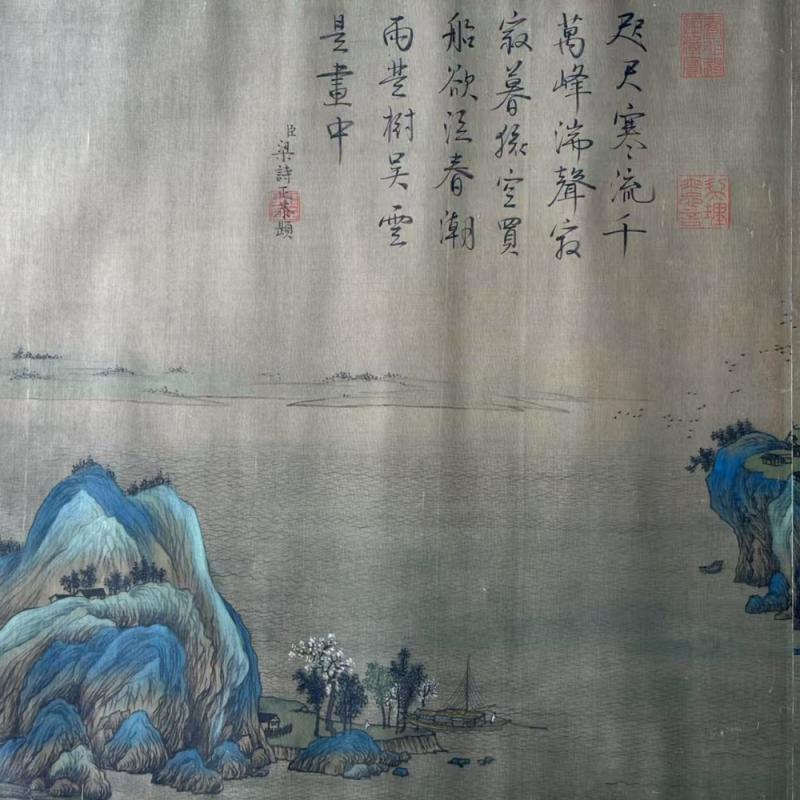 咫尺寒流千
萬峰湍聲寂
寂暮猿空買
船欲泛春潮
雨楚樹吳雲
是畫中
臣梁詩正恭題